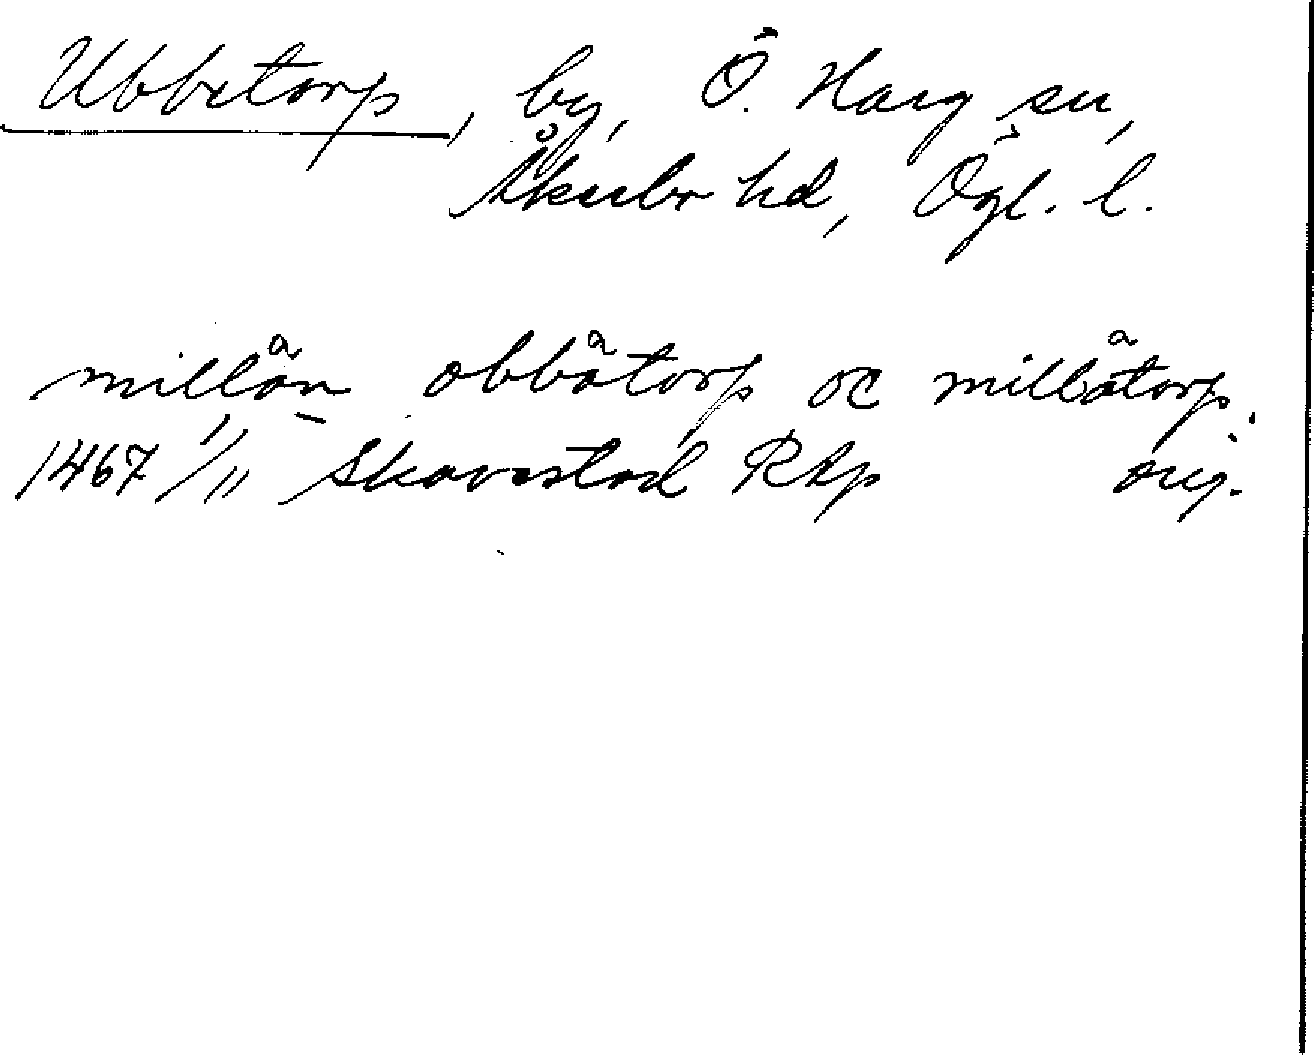 Ubbetorp, by, Ö. Harg sn,
Åkerbo hd, Ögl. l.
millan obbatorp oc millatorp.
1467 1/11 Skavestad RAp orig.